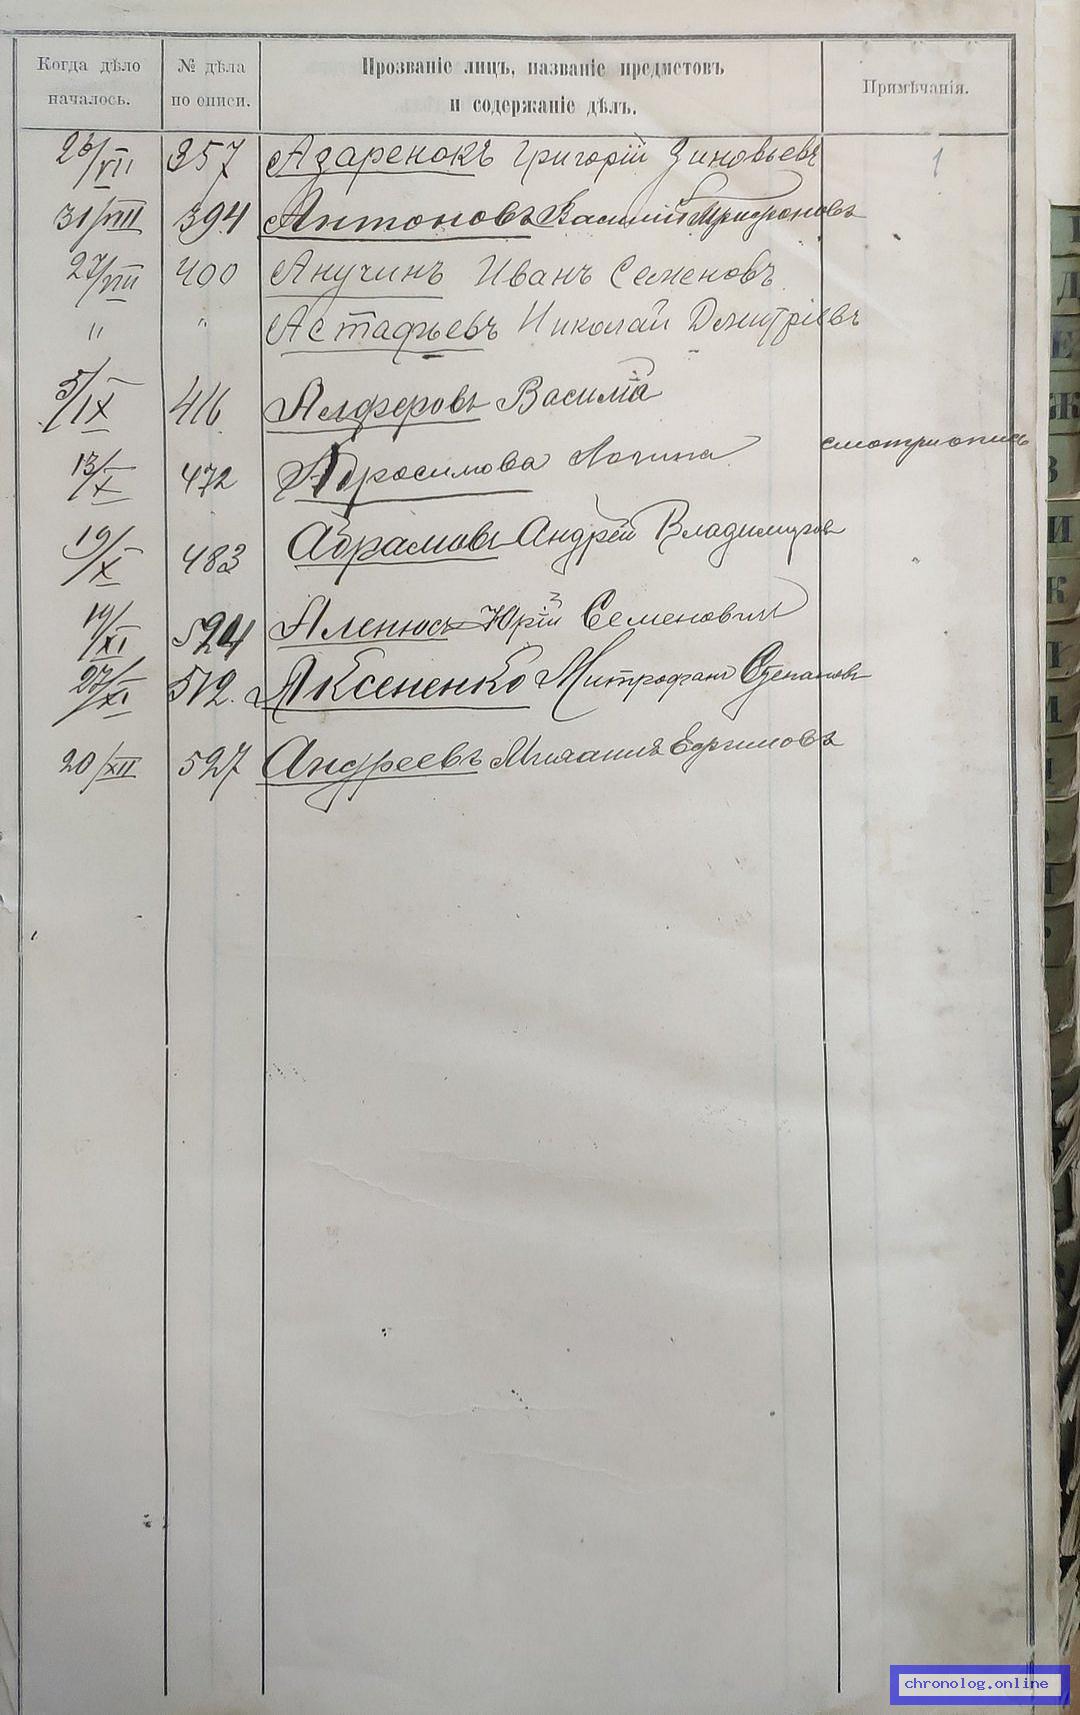 Когда дѣло началось.
№ дѣла по описи.
Прозваніе лицъ, названіе предметовъ
и содержаніе дѣлъ.
Примѣчанія.
1
26/VII 357 Азаренокъ Григорій Зиновьевъ
31/VIII 394 Антоновъ Василій
27/VIII 400 Анучинъ Иванъ Семеновъ
" " Астафьевъ Николай Дмитріевъ
5/IX 416 Алферовъ Василій
13/X 472 Абросимова смотри опись
19/X 483 Абрамовъ Андрей Владимировъ
19/XI 524 Юрій Семеновичъ
27/XI 512. Аксененко Митрофанъ Степановъ
20/XII 527 Андреевъ Ефимовъ
Д
Е
Ж
З
И
К
chronolog.online